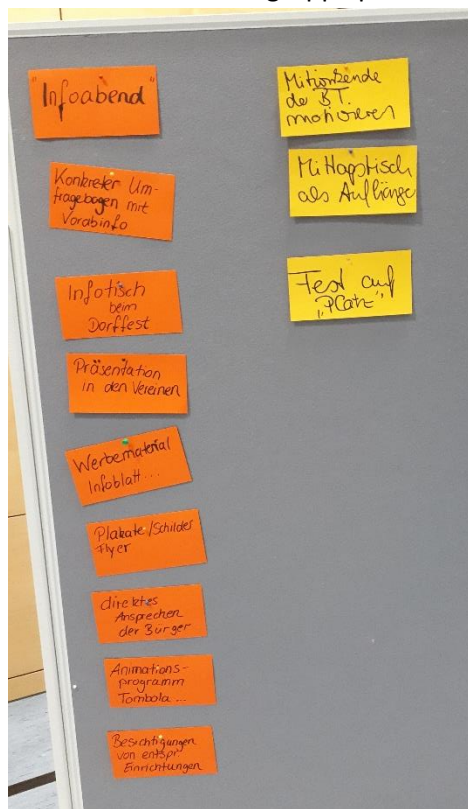 "Infoabend"
Konkreter Um-
fragebogen mit
Vorabinfo
Infotisch
beim
Dorffest
Präsentation
in den Vereinen
Werbematerial
Infoblatt...
Plakate/Schilder
Flyer
direktes
Ansprechen
der Bürger
Animations-
programm
Tombola...
Besichtigungen
von entspr.
Einrichtungen
de BT.
motivieren
Mittagstisch
als Aufhänger
Fest auf
"Platz"